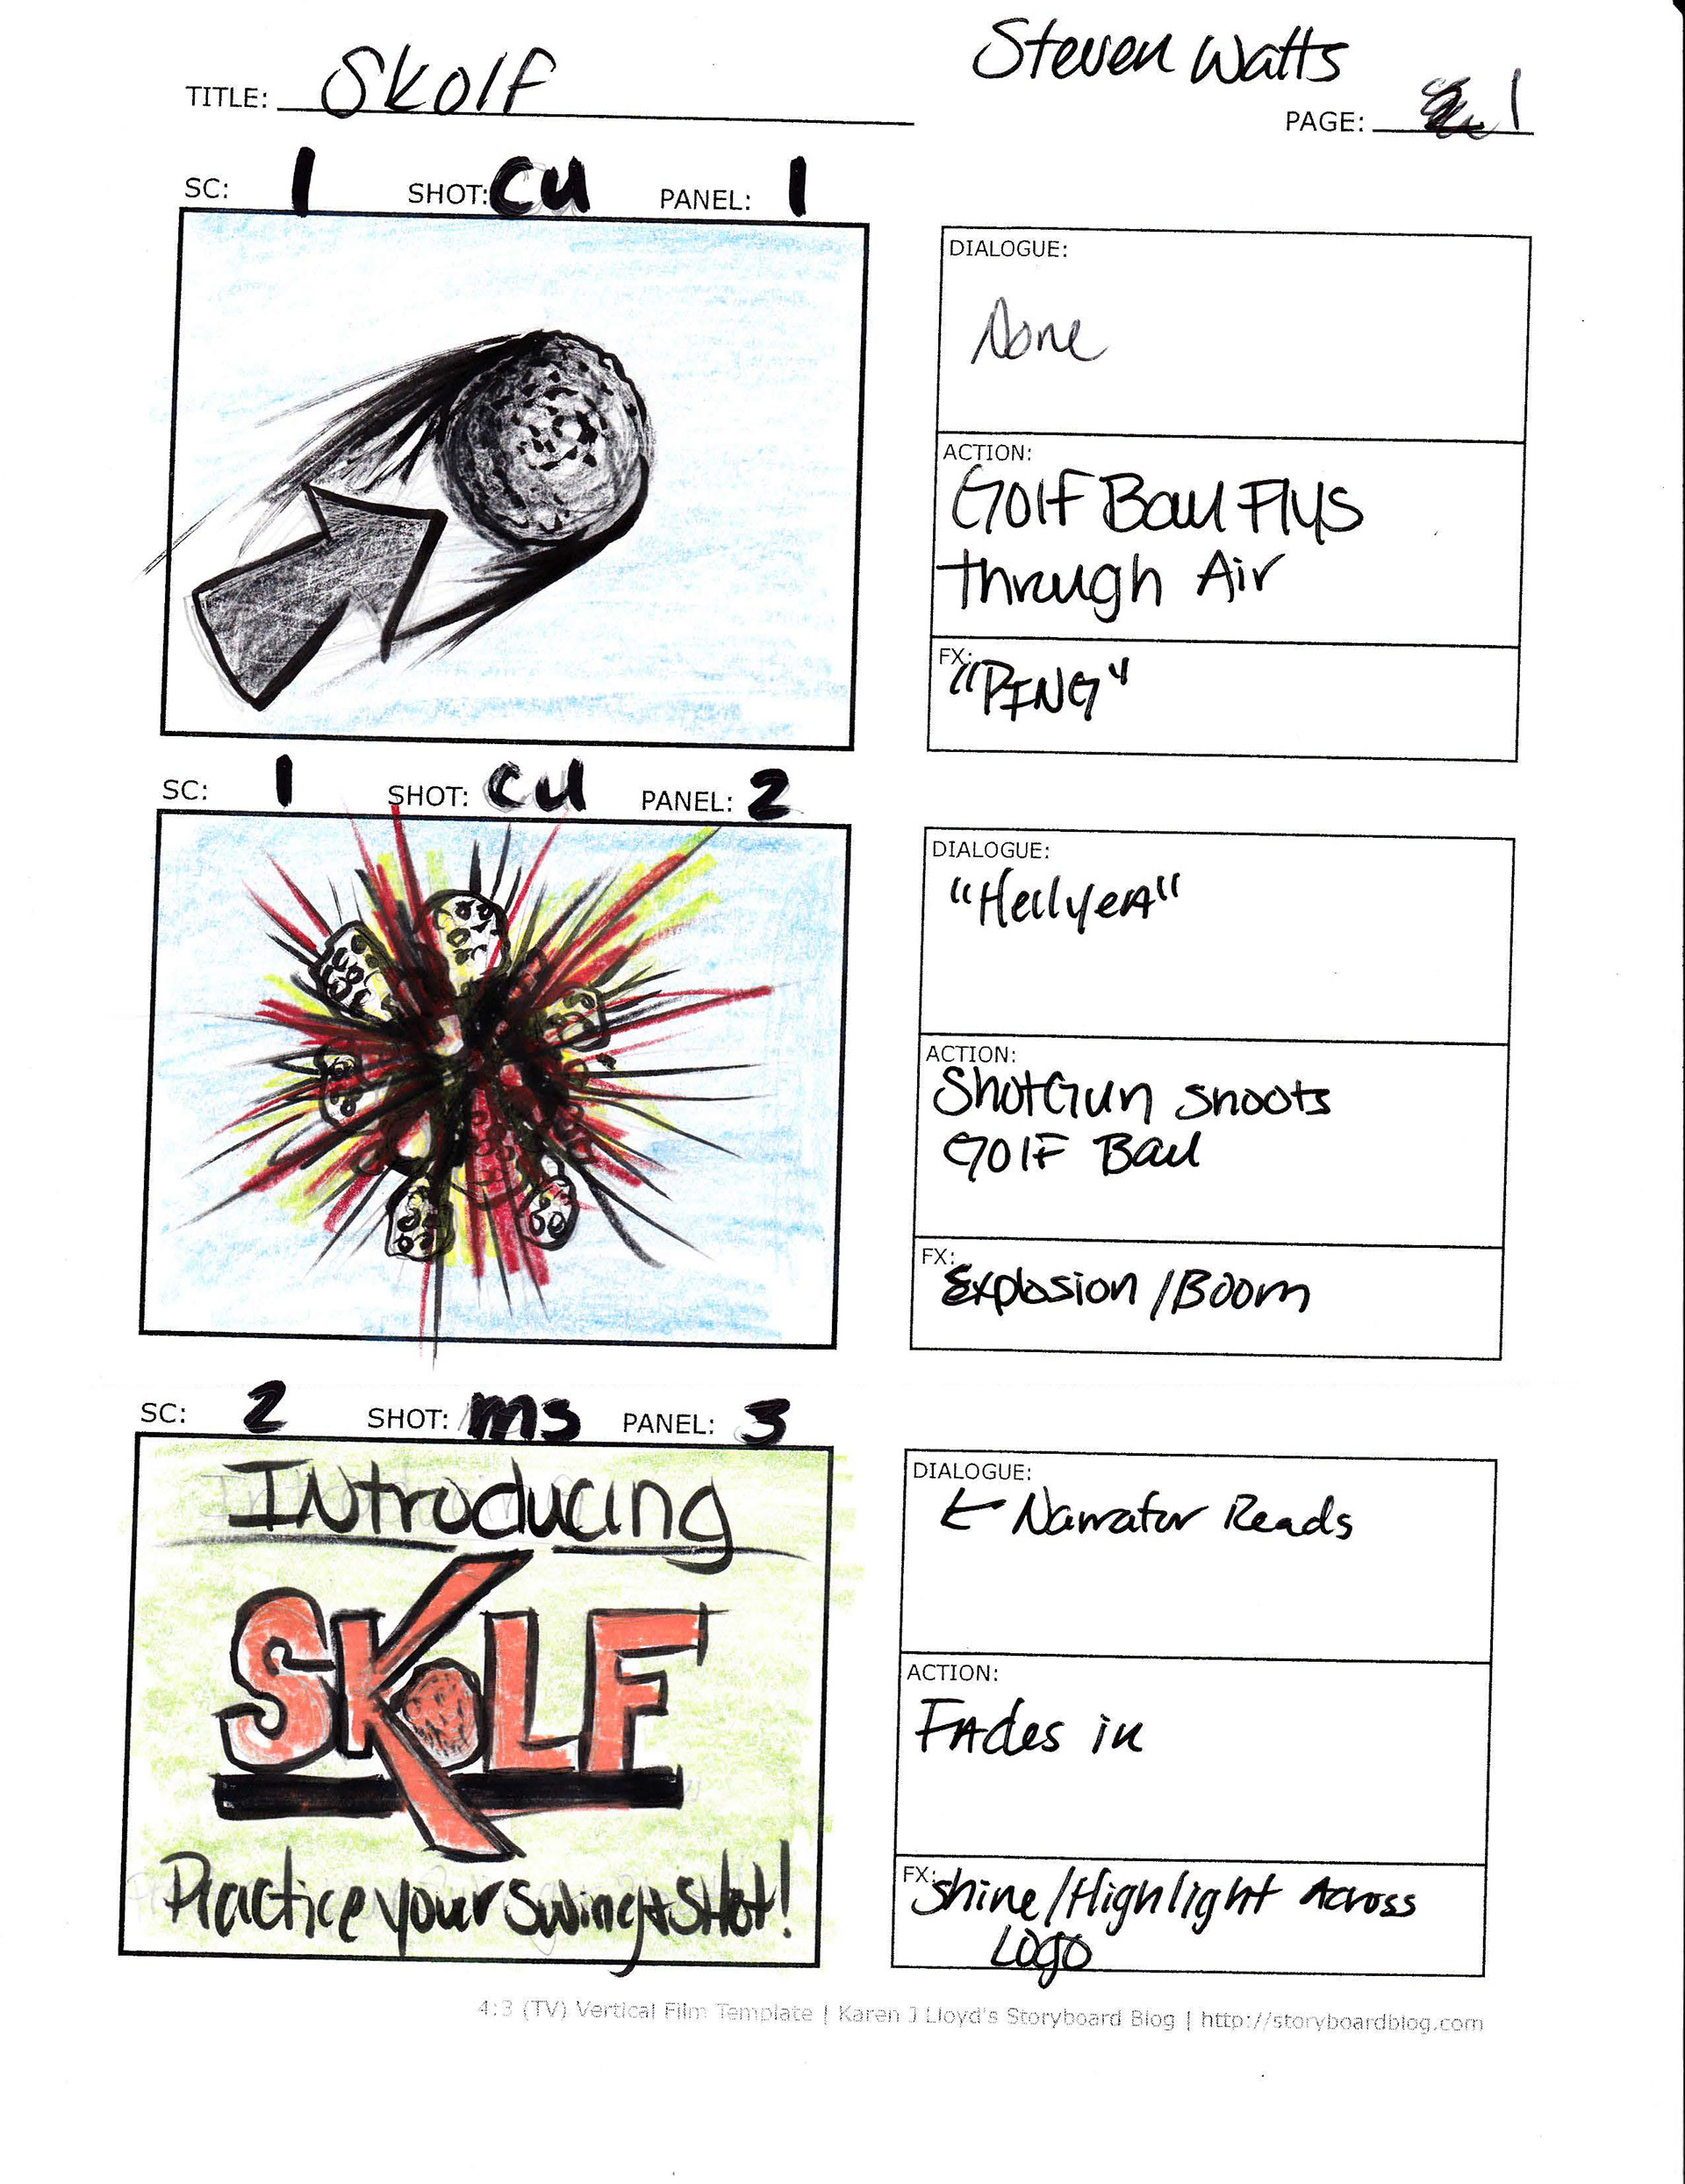 Steven Watts
TITLE: Skolf
PAGE: 1
SC: 1 SHOT: CU PANEL: 1
DIALOGUE:
None
ACTION:
Golf Ball Flys
through Air
FX:
"PING"
SC: 1 SHOT: CU PANEL: 2
DIALOGUE:
"Hellyea"
ACTION:
ShotGun shoots
Golf Ball
FX:
Explosion / Boom
SC: 2 SHOT: MS PANEL: 3
Introducing
SKOLF
Practice your Swing + SHot!
DIALOGUE:
← Narrator Reads
ACTION:
FAdes in
FX:
Shine / Highlight Across
Logo
4:3 (TV) Vertical Film Template | Karen J Lloyd's Storyboard Blog | http://storyboardblog.com